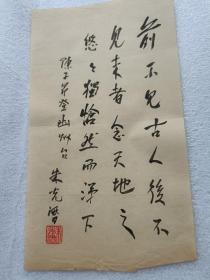 前不見古人後不
見来者念天地之
悠々獨愴然而涕下
陳子昂登幽州台
朱光潛